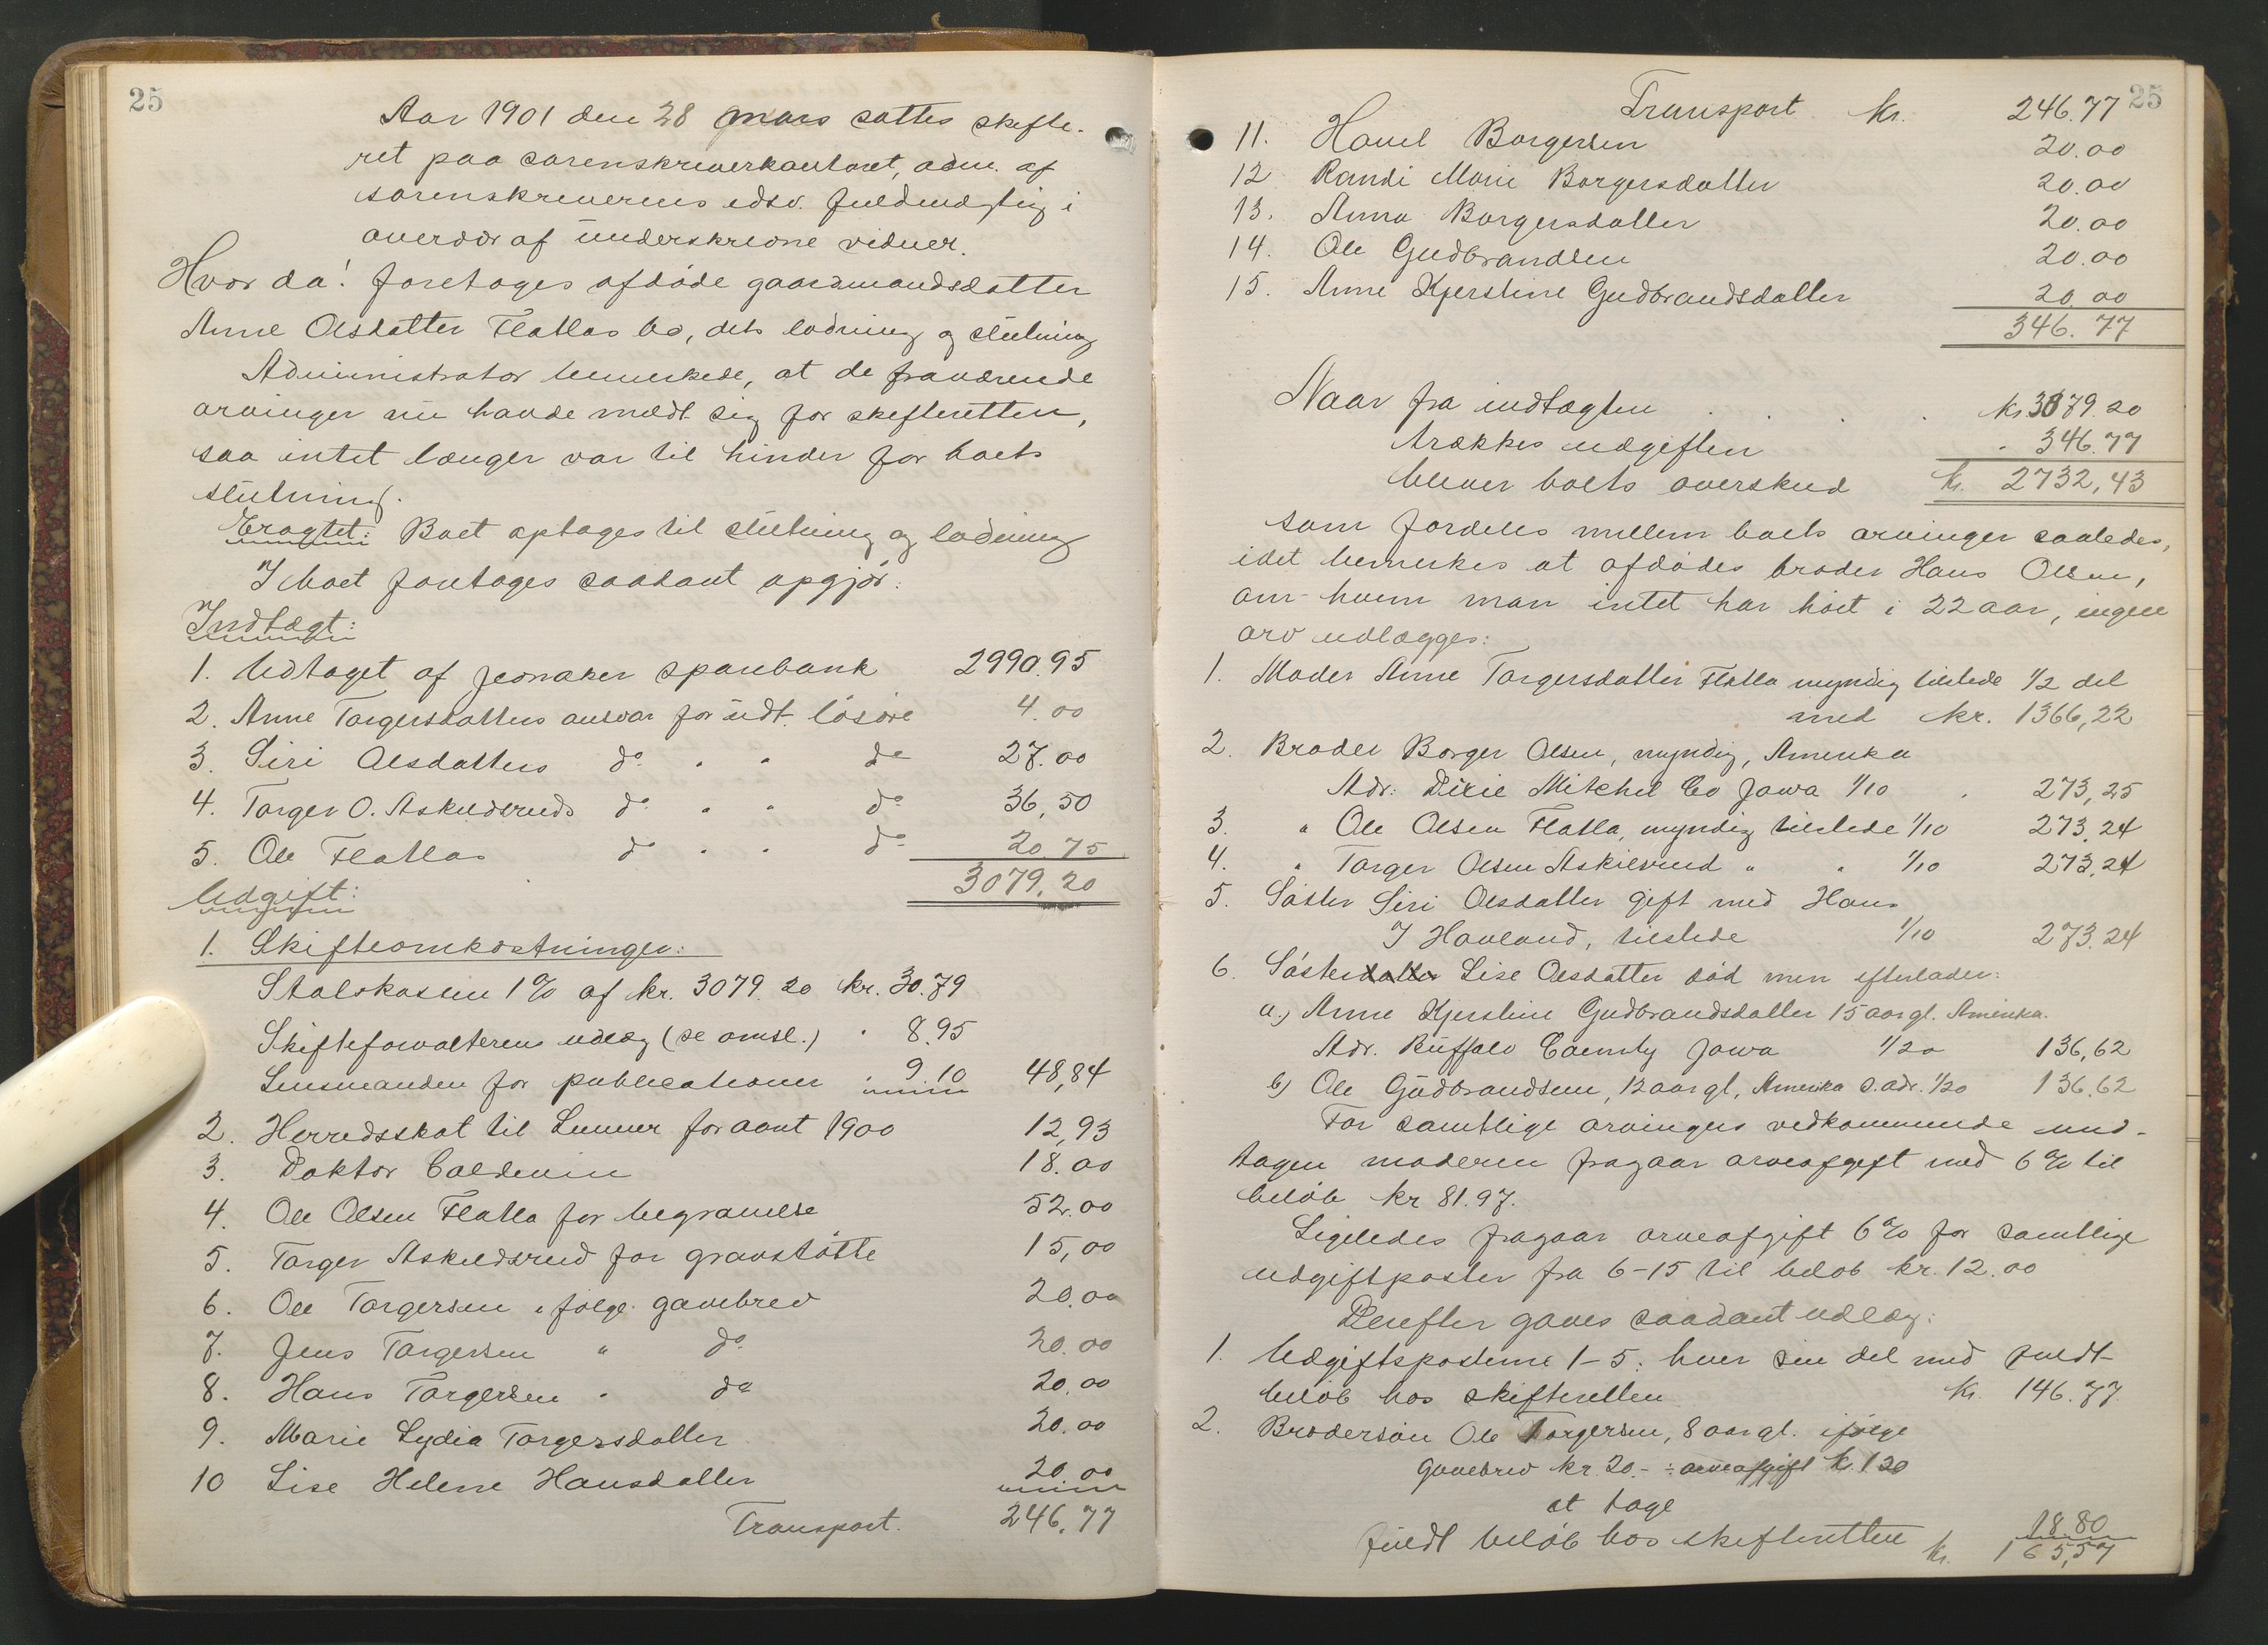 25
Aar 1901 den 28 mars sattes skifte-
ret paa sorenskriverkontoret, adm. af
sorenskriverens edsv. fuldmægtig i
overvær af underskrevne vidner.
Hvor da! foretoges afdøde gaardmandsdatter
Anne Olsdatter Flatlas bo, dets lodning og slutning
Administrator bemerkede, at de fraværende
arvinger nu havde meldt sig for skifteretten,
saa intet længer var til hinder for boets
slutning.
Eragtet: Boet optages til slutning og lodning
I boet foretoges saadant opgjør:
Indtægt:
1. Udtaget af Jevnaker sparebank 2990.95
2. Anne Torgersdatters ansvar for udt. løsøre 4.00
3. Siri Olsdatters do " " do 27.00
4. Torger O. Askildsruds do " " do 36,50
5. Ole Flatlas do " " do 20.75
3079.20
Udgift:
1. Skifteomkostninger:
Statskassen 1% af kr. 3079.20 kr. 30.79
Skifteforvalterens udlæg (se omsl.) " 8.95
Lensmanden for publicationer " 9.10 48,84
2. Herredsskat til Lunner for aaret 1900 12,93
3. Doktor Caldevin 18.00
4. Ole Olsen Flatla for begravelse 52.00
5. Torger Askildsrud for gravstøtte 15,00
6. Ole Torgersen i følge gavebrev 20.00
7. Jens Torgersen " do 20.00
8. Hans Torgersen " do 20.00
9. Marie Lydia Torgersdatter 20.00
10 Lise Helene Hansdatter 20.00
Transport. 246.77
25
Transport kr. 246.77
11. Havel Borgersen 20.00
12 Randi Marie Borgersdatter 20.00
13. Anna Borgersdatter 20.00
14. Ole Gudbrandsen 20.00
15. Anne Kjerstine Gudbrandsdatter 20.00
346.77
Naar fra indtægten . . . kr 3079.20
trækkes udgiften " 346.77
bliver boets overskud kr. 2732,43
som fordeles mellem boets arvinger saaledes,
idet bemerkes at afdødes broder Hans Olsen,
om hvem man intet har hørt i 22 aar, ingen
arv udlægges:
1. Moder Anne Torgersdatter Flatla myndig tilstede 1/2 del
med kr. 1366,22
2. Broder Borger Olsen, myndig, Amerika
Adr: Dixie Mitchel Co Jowa 1/10 " 273,25
3. " Ole Olsen Flatla, myndig tilstede 1/10 273.24
4. " Torger Olsen Askilsrud " " 1/10 273,24
5. Søster Siri Olsdatter gift med Hans
I Hovland, tilstede 1/10 273.24
6. Søsterdatter Lise Olsdatter død men efterlader:
a.) Anne Kjerstine Gudbrandsdatter 15 aar gl. Amerika.
Adr. Buffalo Caunty Jowa 1/20 136,62
b) Ole Gudbrandsen, 12 aar gl, Amerika s. adr. 1/20 136.62
For samtlige arvingers vedkommende und-
tagen moderen fragaar arveafgift med 6% til
beløb kr 81.97.
Ligeledes fragaar arveafgift 6% for samtlige
udgiftposter fra 6-15 til beløb kr. 12.00
Derefter gaves saadant udlæg:
1. Udgiftsposterne 1-5: hver sin del med fuldt
beløb hos skifteretten kr. 146.77
2. Brodersøn Ole Torgersen, 8 aar gl. ifølge
gavebrev kr. 20.- ÷ arveafgift kr. 1 20
at tage
fuldt beløb hos skifteretten 18.80
kr. 165,57